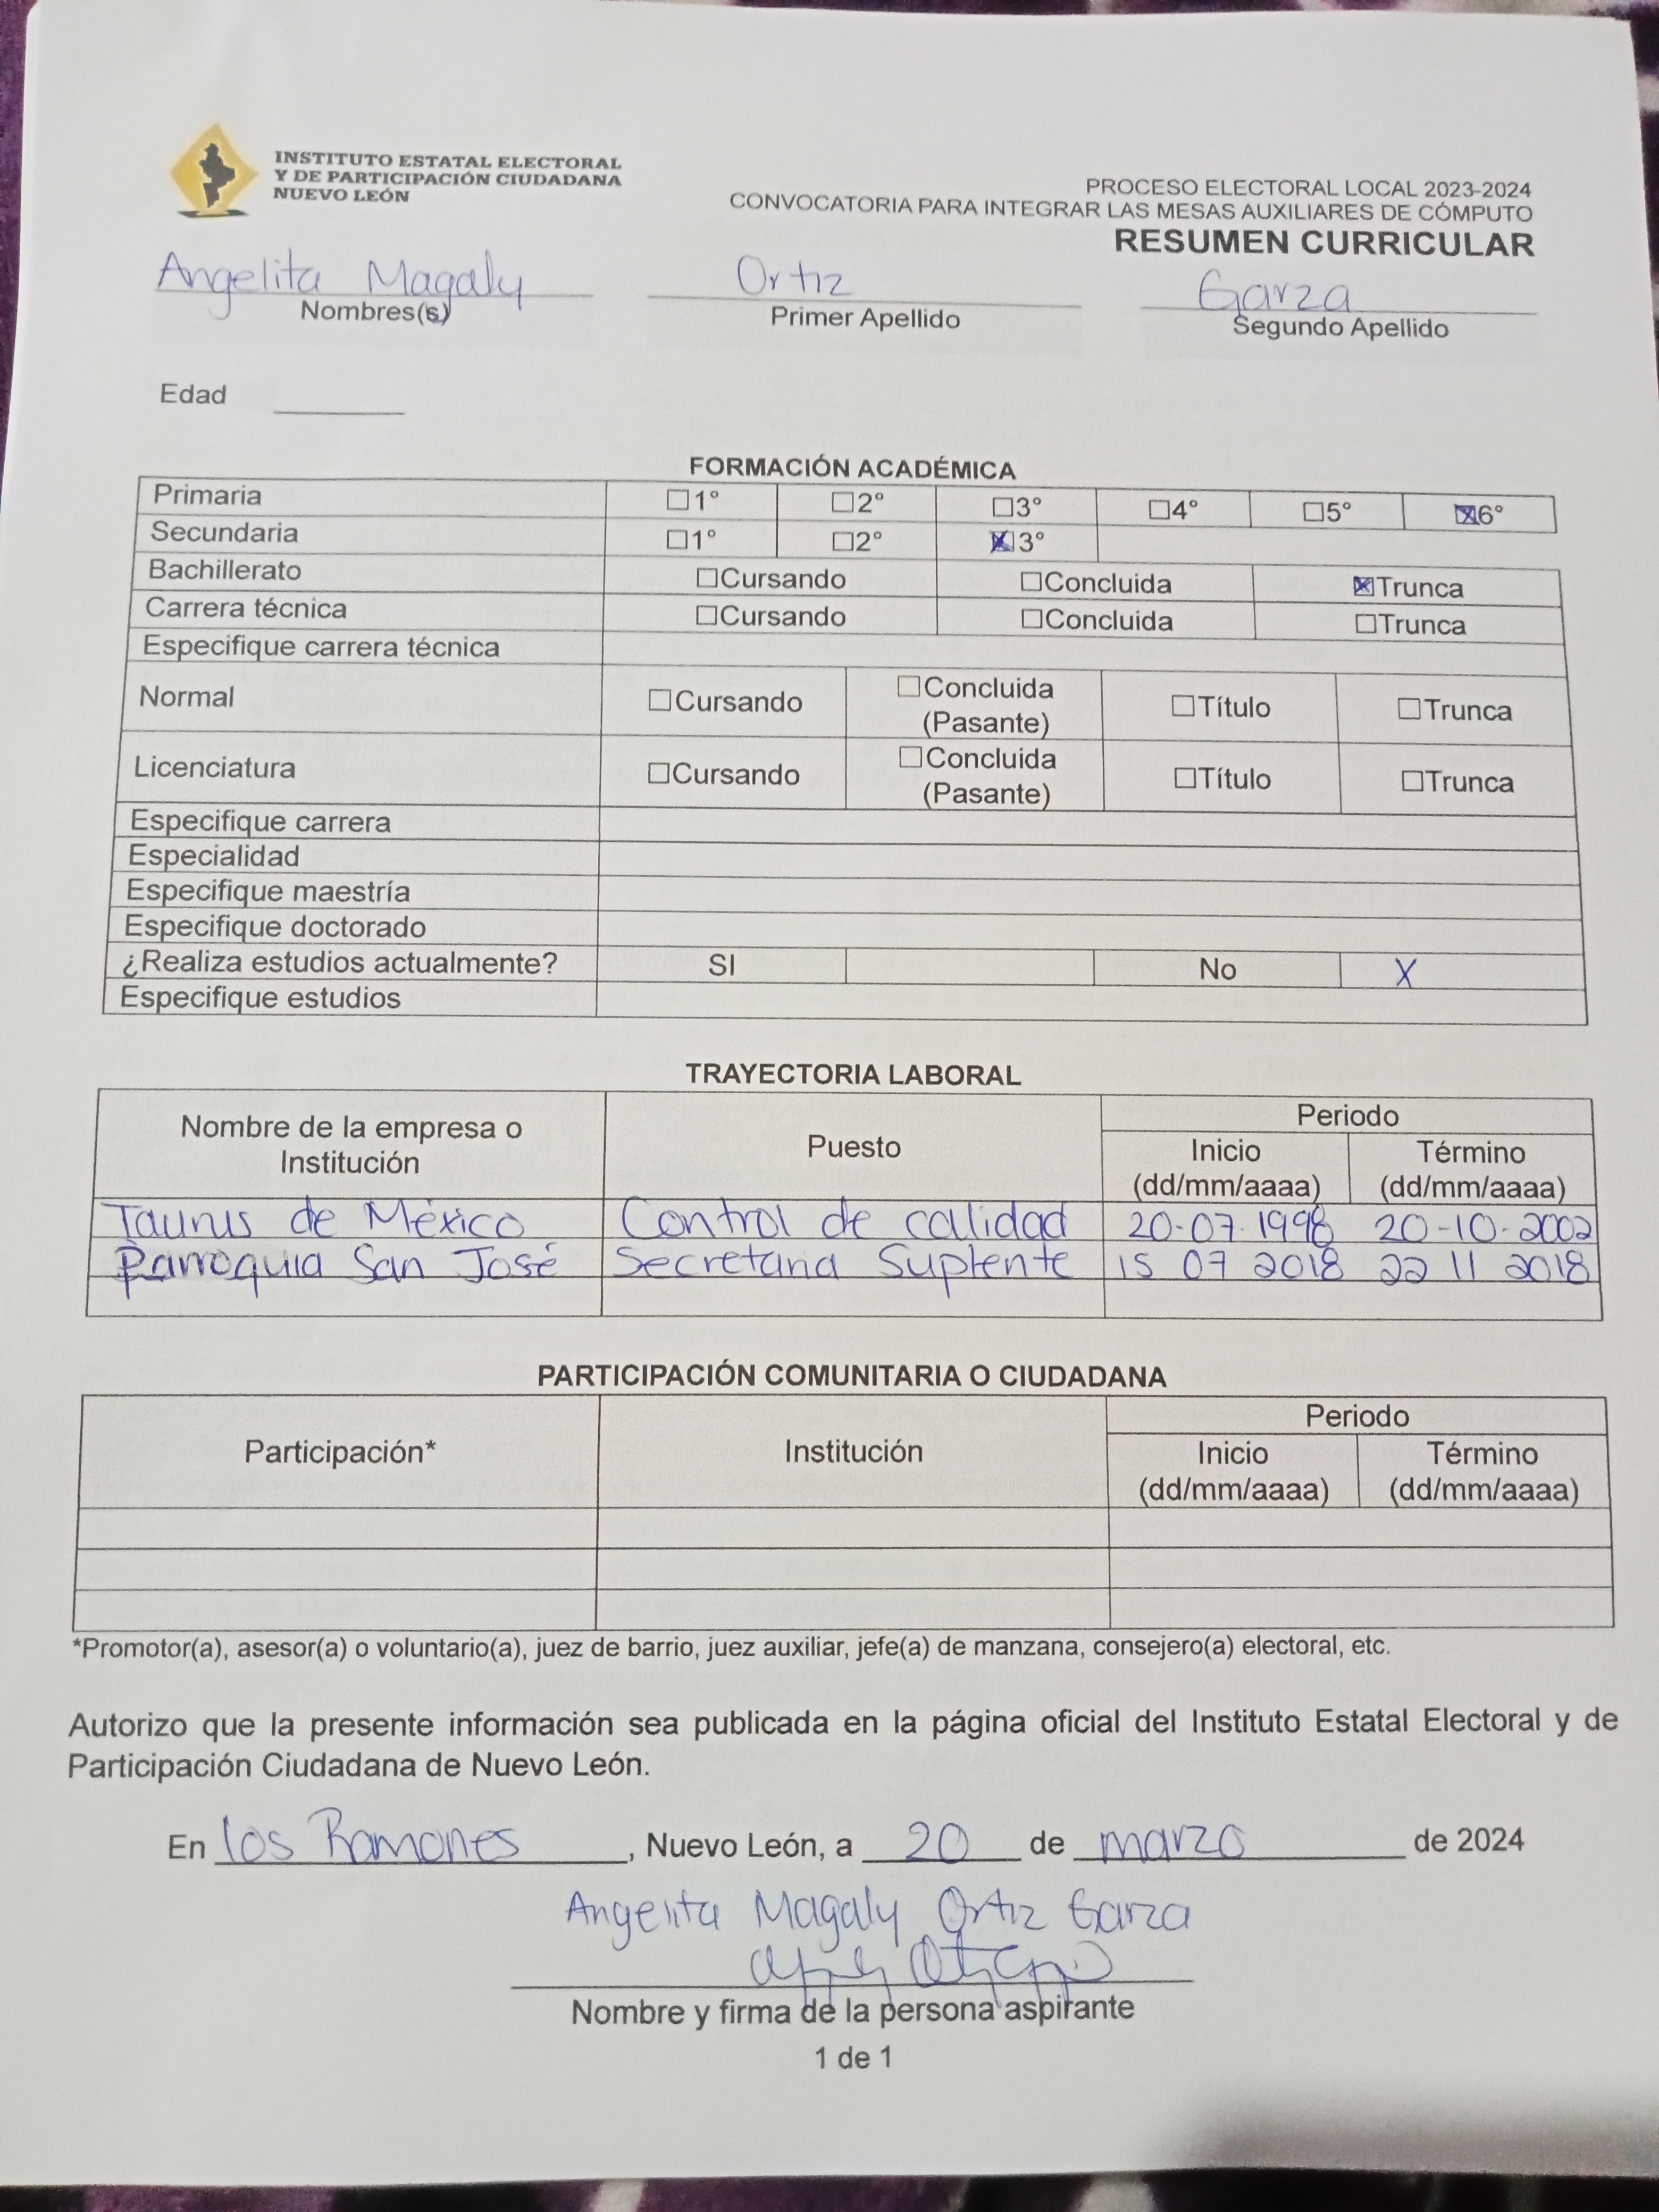 INSTITUTO ESTATAL ELECTORAL
Y DE PARTICIPACIÓN CIUDADANA
NUEVO LEÓN
PROCESO ELECTORAL LOCAL 2023-2024
CONVOCATORIA PARA INTEGRAR LAS MESAS AUXILIARES DE CÓMPUTO
RESUMEN CURRICULAR
Angelita Magaly Ortiz Garza
Nombres(s) Primer Apellido Segundo Apellido
Edad
FORMACIÓN ACADÉMICA
Primaria ☐1° ☐2° ☐3° ☐4° ☐5° ☒6°
Secundaria ☐1° ☐2° ☒3°
Bachillerato ☐Cursando ☐Concluida ☒Trunca
Carrera técnica ☐Cursando ☐Concluida ☐Trunca
Especifique carrera técnica
Normal ☐Cursando ☐Concluida (Pasante) ☐Título ☐Trunca
Licenciatura ☐Cursando ☐Concluida (Pasante) ☐Título ☐Trunca
Especifique carrera
Especialidad
Especifique maestría
Especifique doctorado
¿Realiza estudios actualmente? SI No X
Especifique estudios
TRAYECTORIA LABORAL
Nombre de la empresa o Institución Puesto Periodo
Inicio (dd/mm/aaaa) Término (dd/mm/aaaa)
Taurus de México Control de calidad 20-07-1998 20-10-2002
Parroquia San José Secretaria Suplente 15 07 2018 22 11 2018
PARTICIPACIÓN COMUNITARIA O CIUDADANA
Participación* Institución Periodo
Inicio (dd/mm/aaaa) Término (dd/mm/aaaa)
*Promotor(a), asesor(a) o voluntario(a), juez de barrio, juez auxiliar, jefe(a) de manzana, consejero(a) electoral, etc.
Autorizo que la presente información sea publicada en la página oficial del Instituto Estatal Electoral y de
Participación Ciudadana de Nuevo León.
En los Ramones, Nuevo León, a 20 de marzo de 2024
Angelita Magaly Ortiz Garza
Nombre y firma de la persona aspirante
1 de 1